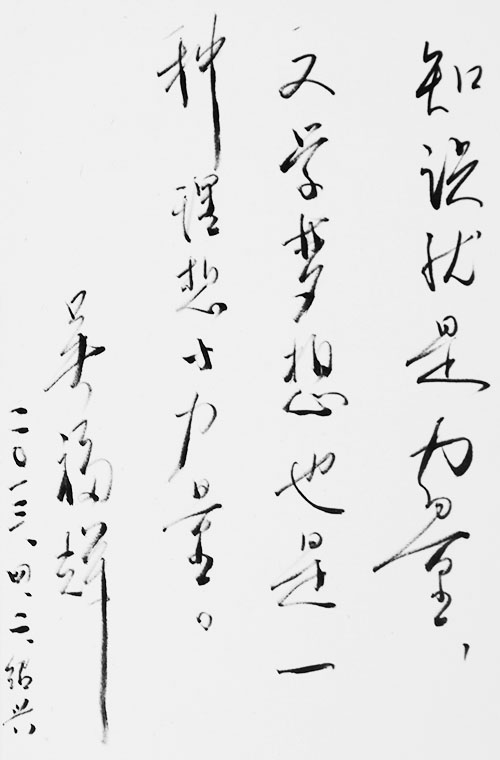 知识就是力量，
文学梦想也是一
种理想的力量。
吴福辉
二〇一三、四、二、绍兴